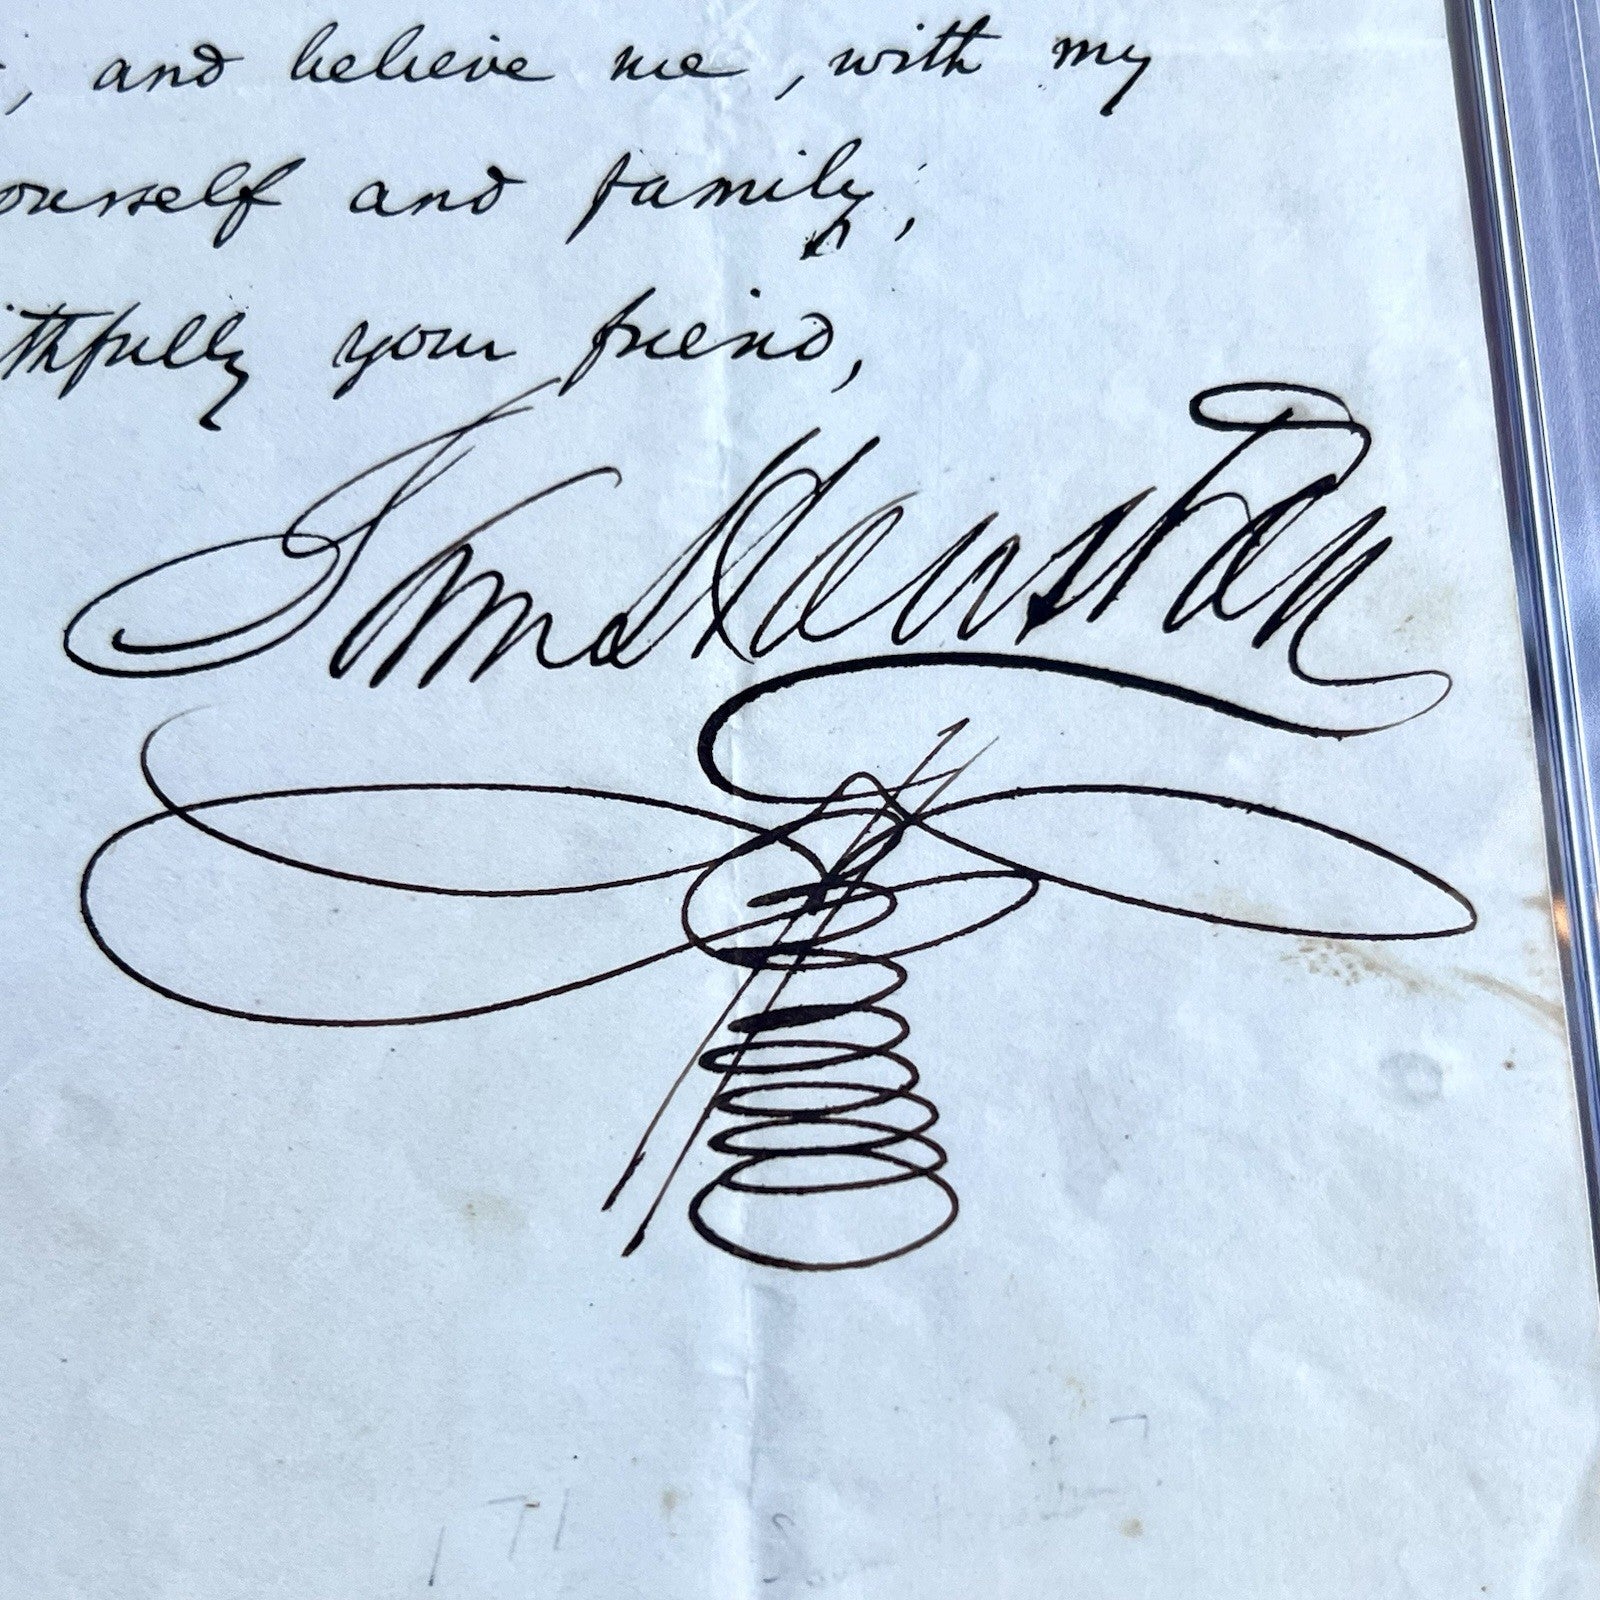 , and believe me, with my
ourself and family,
thfully your friend,
Sam Houston